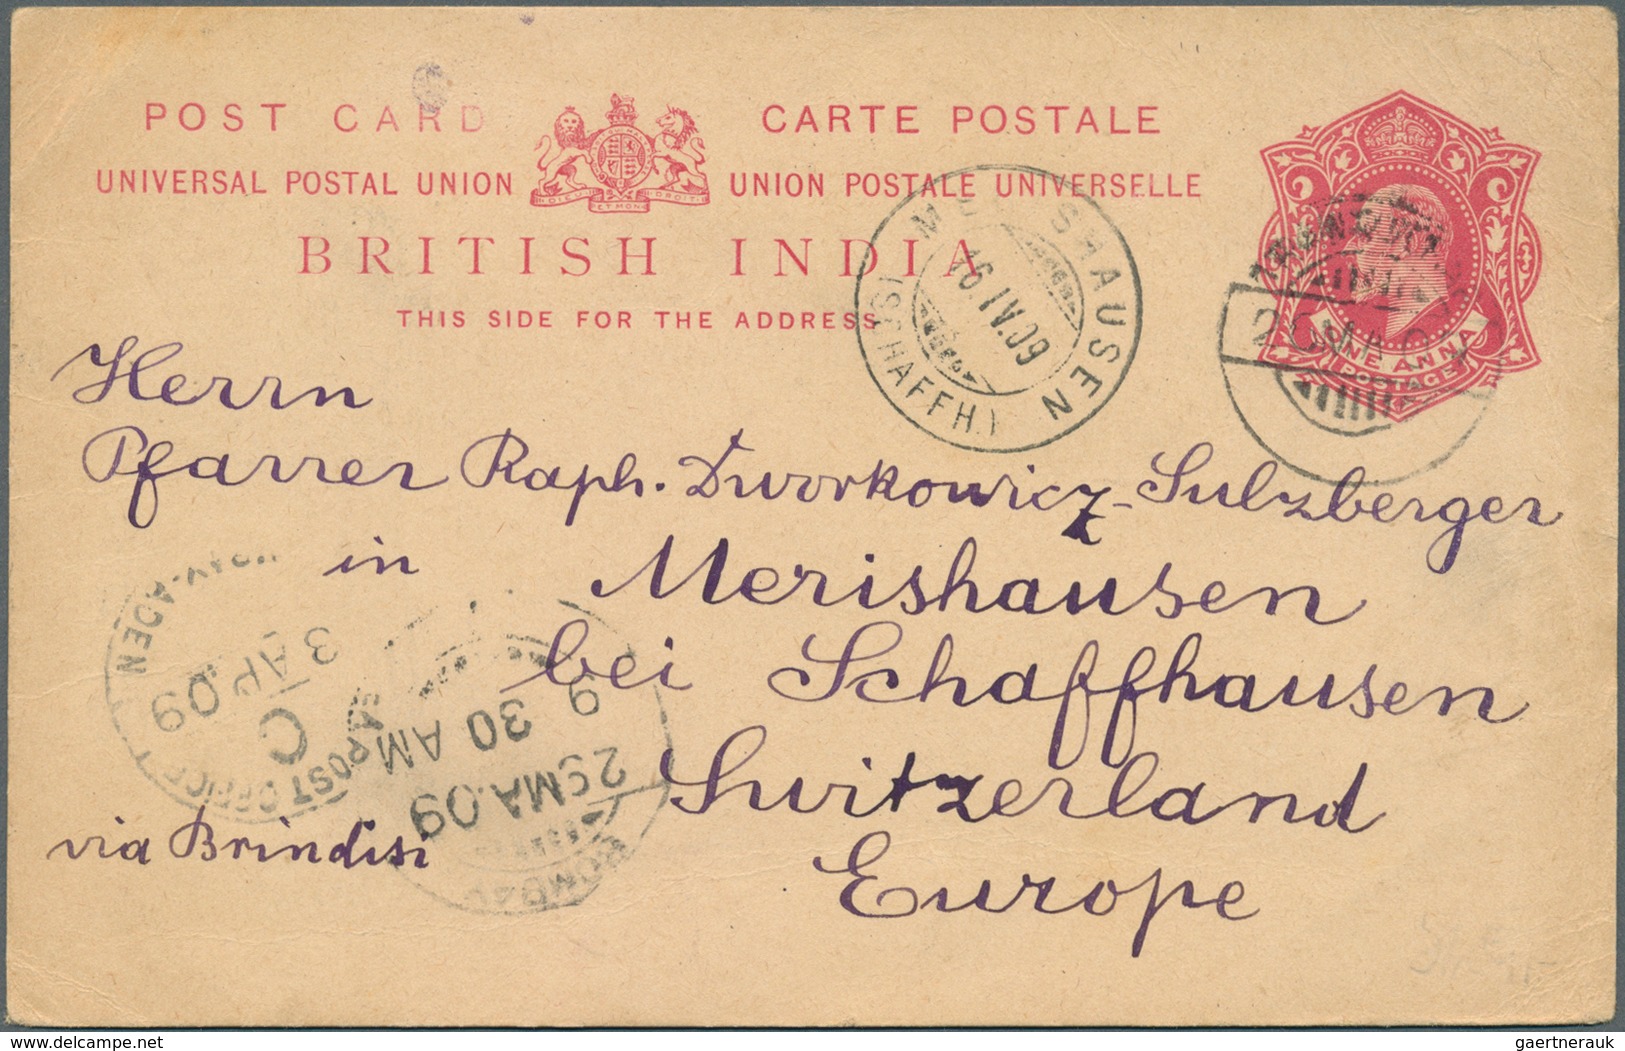 POST CARD CARTE POSTALE
UNIVERSAL POSTAL UNION UNION POSTALE UNIVERSELLE
DIEU ET MON DROIT
BRITISH INDIA
THIS SIDE FOR THE ADDRESS
ONE ANNA
POSTAGE
SHAUSEN
16.IV.09
(SCHAFFH.)
Herrn
Pfarrer Raph. Dworkowicz-Sulzberger
in Merishausen
bei Schaffhausen
Switzerland
Europe
via Brindisi
ADEN
3 AP.09
C
SEA POST OFFICE
9 30 AM
29MA.09
delcampe.net
gaertnerauk